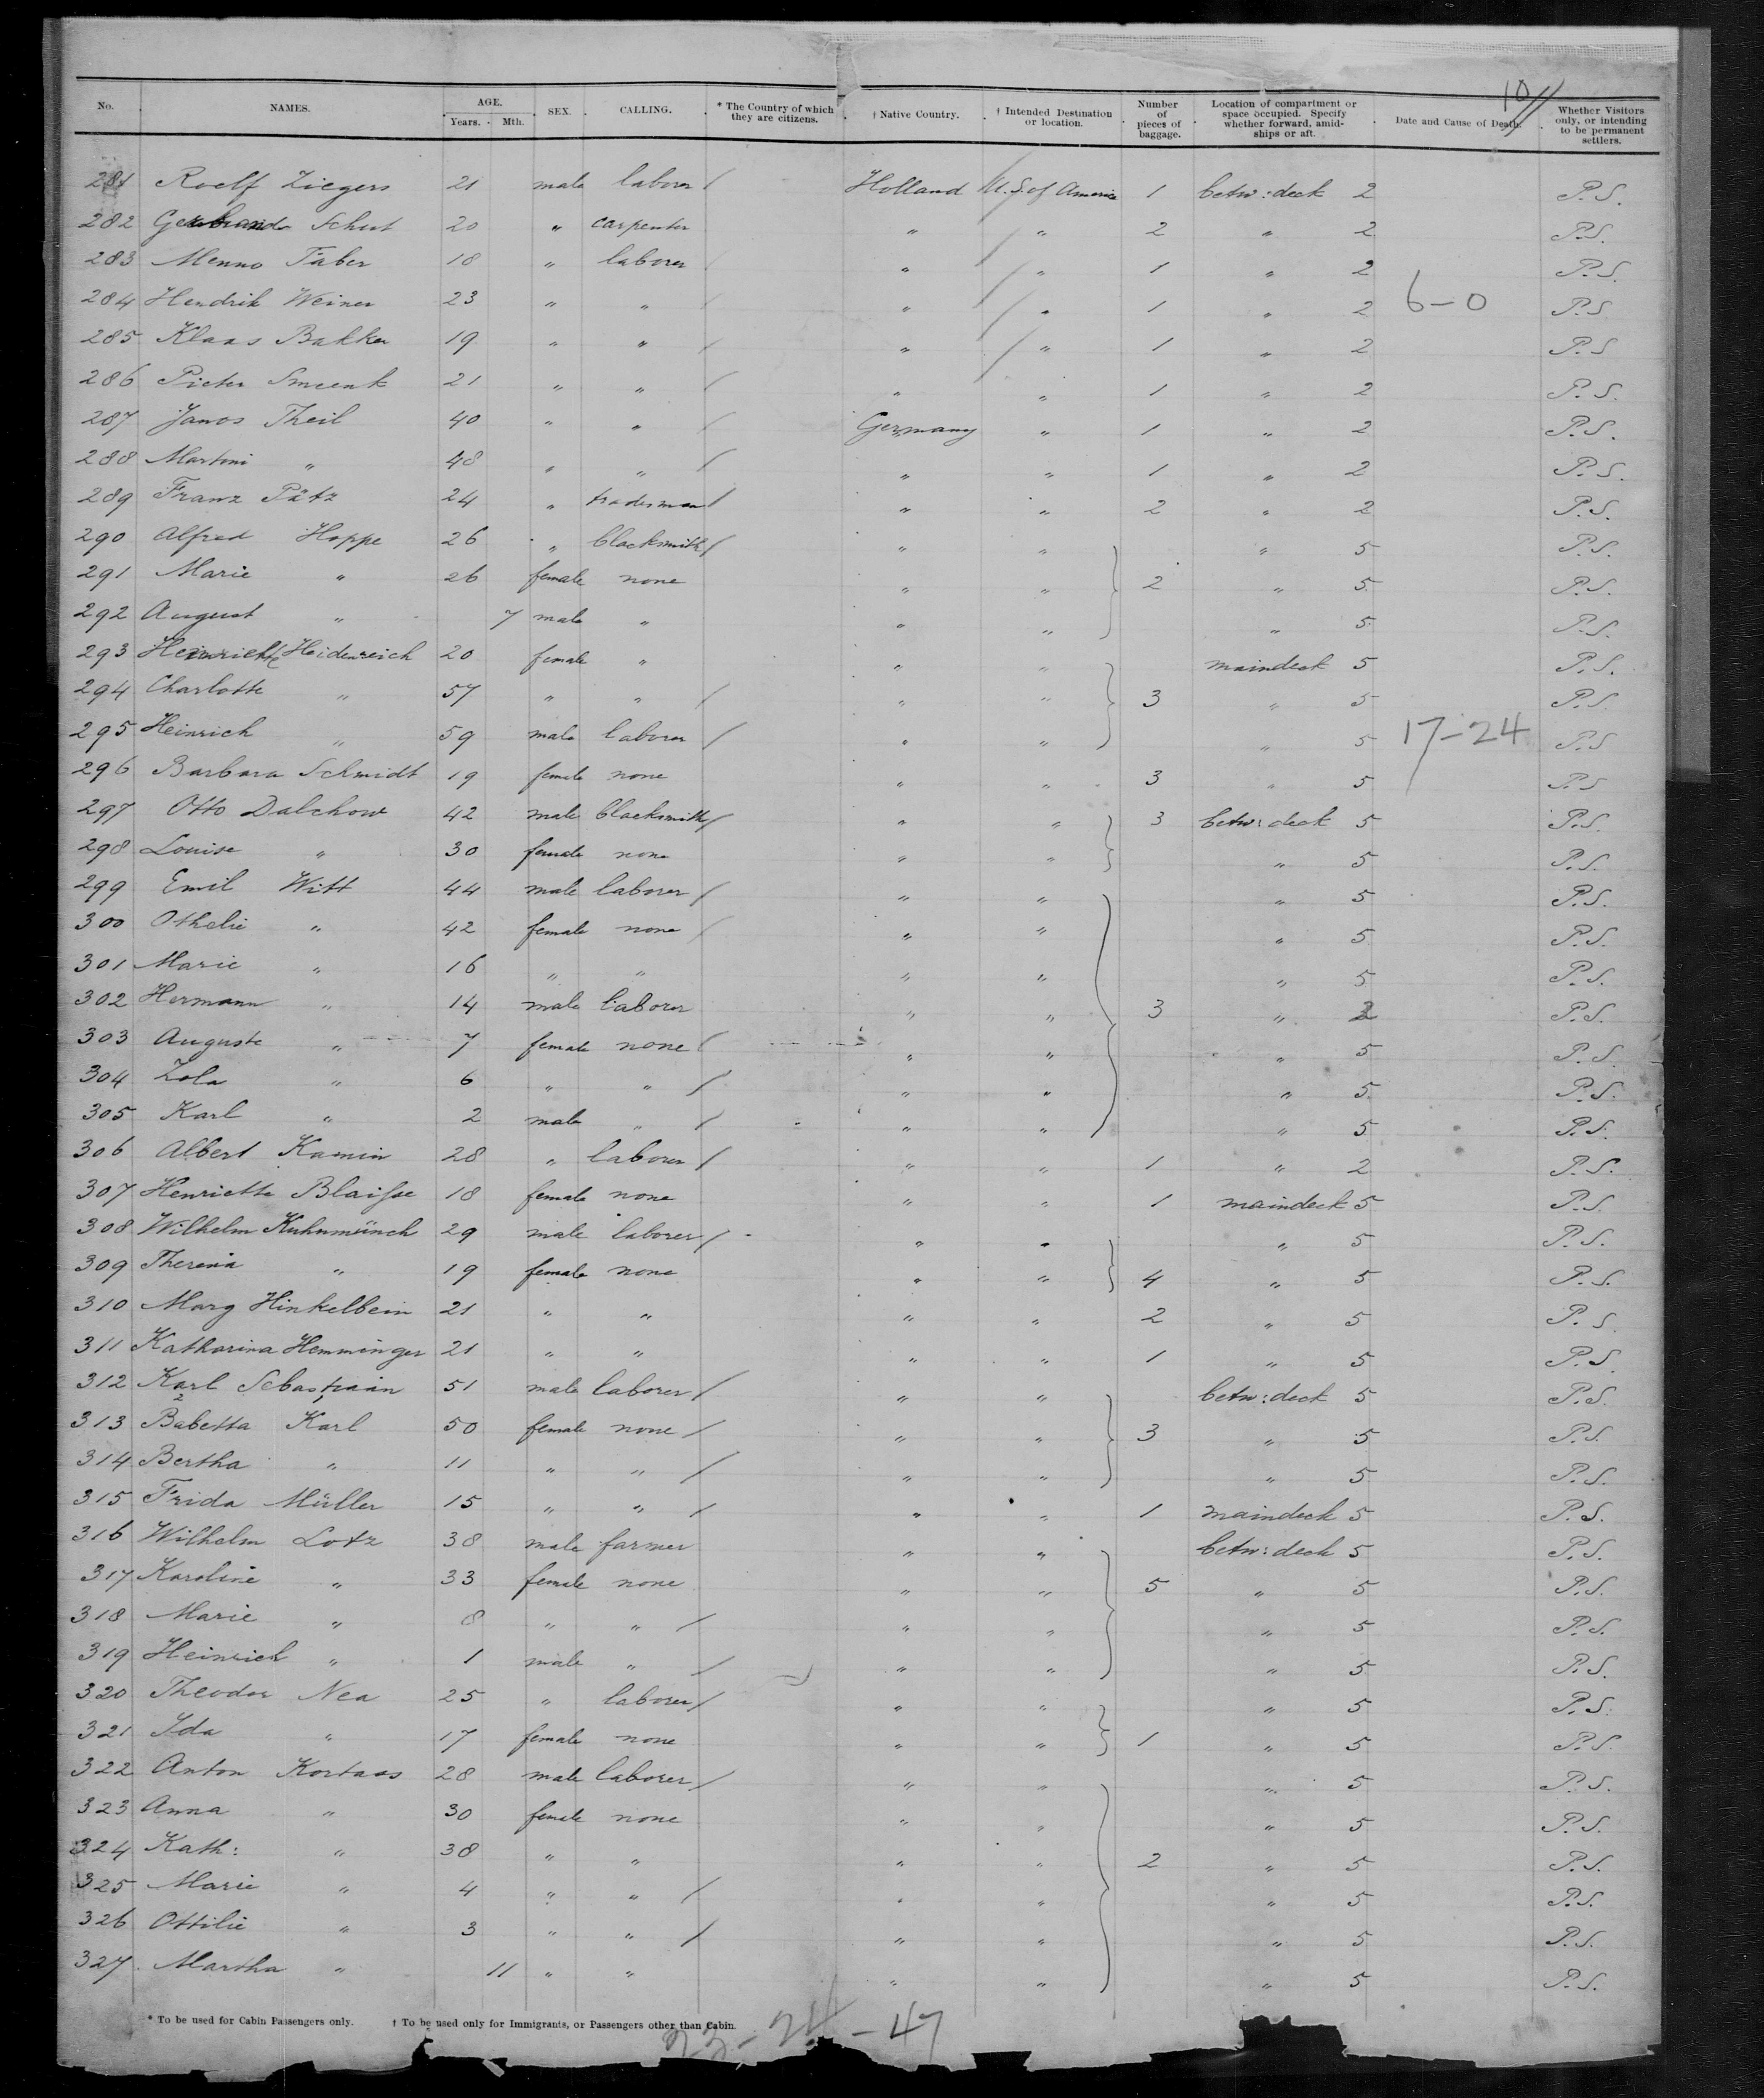 10
No. NAMES. AGE. Years. Mth. SEX. CALLING. * The Country of which they are citizens. † Native Country. † Intended Destination or location. Number of pieces of baggage. Location of compartment or space occupied. Specify whether forward, amidships or aft. Date and Cause of Death. Whether Visitors only, or intending to be permanent settlers.
281 Roelf Ziegers 21 male laborer / Holland U.S. of America 1 betw: deck 2 P.S.
282 Schut 20 " carpenter " " 2 " 2 P.S.
283 Menno Faber 18 " laborer / " " 1 " 2 P.S.
284 Hendrik Weiner 23 " " / " " 1 " 2 6-0 P.S
285 Klaas Bakker 19 " " / " " 1 " 2 P.S
286 Pieter Smeenk 21 " " / " " 1 " 2 P.S.
287 Janos Theil 40 " " / Germany " 1 " 2 P.S.
288 Martoni " 48 " " / " " 1 " 2 P.S.
289 Franz Pätz 24 " tradesman / " " 2 " 2 P.S.
290 Alfred Hoppe 26 " blacksmith / " " " 5 P.S.
291 Marie " 26 female none " " 2 " 5 P.S.
292 August " 7 male " " " " 5 P.S.
293 Henriette Heidenreich 20 female " " " maindeck 5 P.S.
294 Charlotte " 57 " " / " " 3 " 5 P.S
295 Heinrich " 59 male laborer / " " " 5 17-24 P.S
296 Barbara Schmidt 19 female none " " 3 " 5 P.S
297 Otto Dalchow 42 male blacksmith / " " 3 betw: deck 5 P.S.
298 Louise " 30 female none " " " 5 P.S.
299 Emil Witt 44 male laborer / " " " 5 P.S.
300 Othelie " 42 female none / " " " 5 P.S.
301 Marie " 16 " " " " " 5 P.S.
302 Hermann " 14 male laborer " " 3 " 2 P.S.
303 Auguste " 7 female none / " " " 5 P.S.
304 Lola " 6 " " / " " " 5 P.S.
305 Karl " 2 male " / " " " 5 P.S.
306 Albert Kamin 28 " laborer / " " 1 " 2 P.S.
307 Henriette Blaisse 18 female none " " 1 maindeck 5 P.S.
308 Wilhelm Kuhnmünch 29 male laborer / " " " 5 P.S.
309 Theresia " 19 female none " " 4 " 5 P.S.
310 Marg Hinkelbein 21 " " " " 2 " 5 P.S.
311 Katharina Hemminger 21 " " " " 1 " 5 P.S.
312 Karl Sebastiaan 51 male laborer / " " betw: deck 5 P.S.
313 Babetta Karl 50 female none / " " 3 " 5 P.S.
314 Bertha " 11 " " / " " " 5 P.S.
315 Frida Müller 15 " " / " " 1 maindeck 5 P.S.
316 Wilhelm Lotz 38 male farmer " " betw: deck 5 P.S.
317 Karoline " 33 female none " " 5 " 5 P.S.
318 Marie " 8 " " / " " " 5 P.S.
319 Heinrich " 1 male " / " " " 5 P.S.
320 Theodor Nea 25 " laborer / " " " 5 P.S.
321 Ida " 17 female none " " 1 " 5 P.S.
322 Anton Kortaas 28 male laborer / " " " 5 P.S.
323 Anna " 30 female none " " " 5 P.S.
324 Kath: " 38 " " " " 2 " 5 P.S.
325 Marie " 4 " " / " " " 5 P.S.
326 Ottilie " 3 " " / " " " 5 P.S.
327. Martha " 11 " " " " " 5 P.S.
* To be used for Cabin Passengers only. † To be used only for Immigrants, or Passengers other than Cabin.
23-24-47